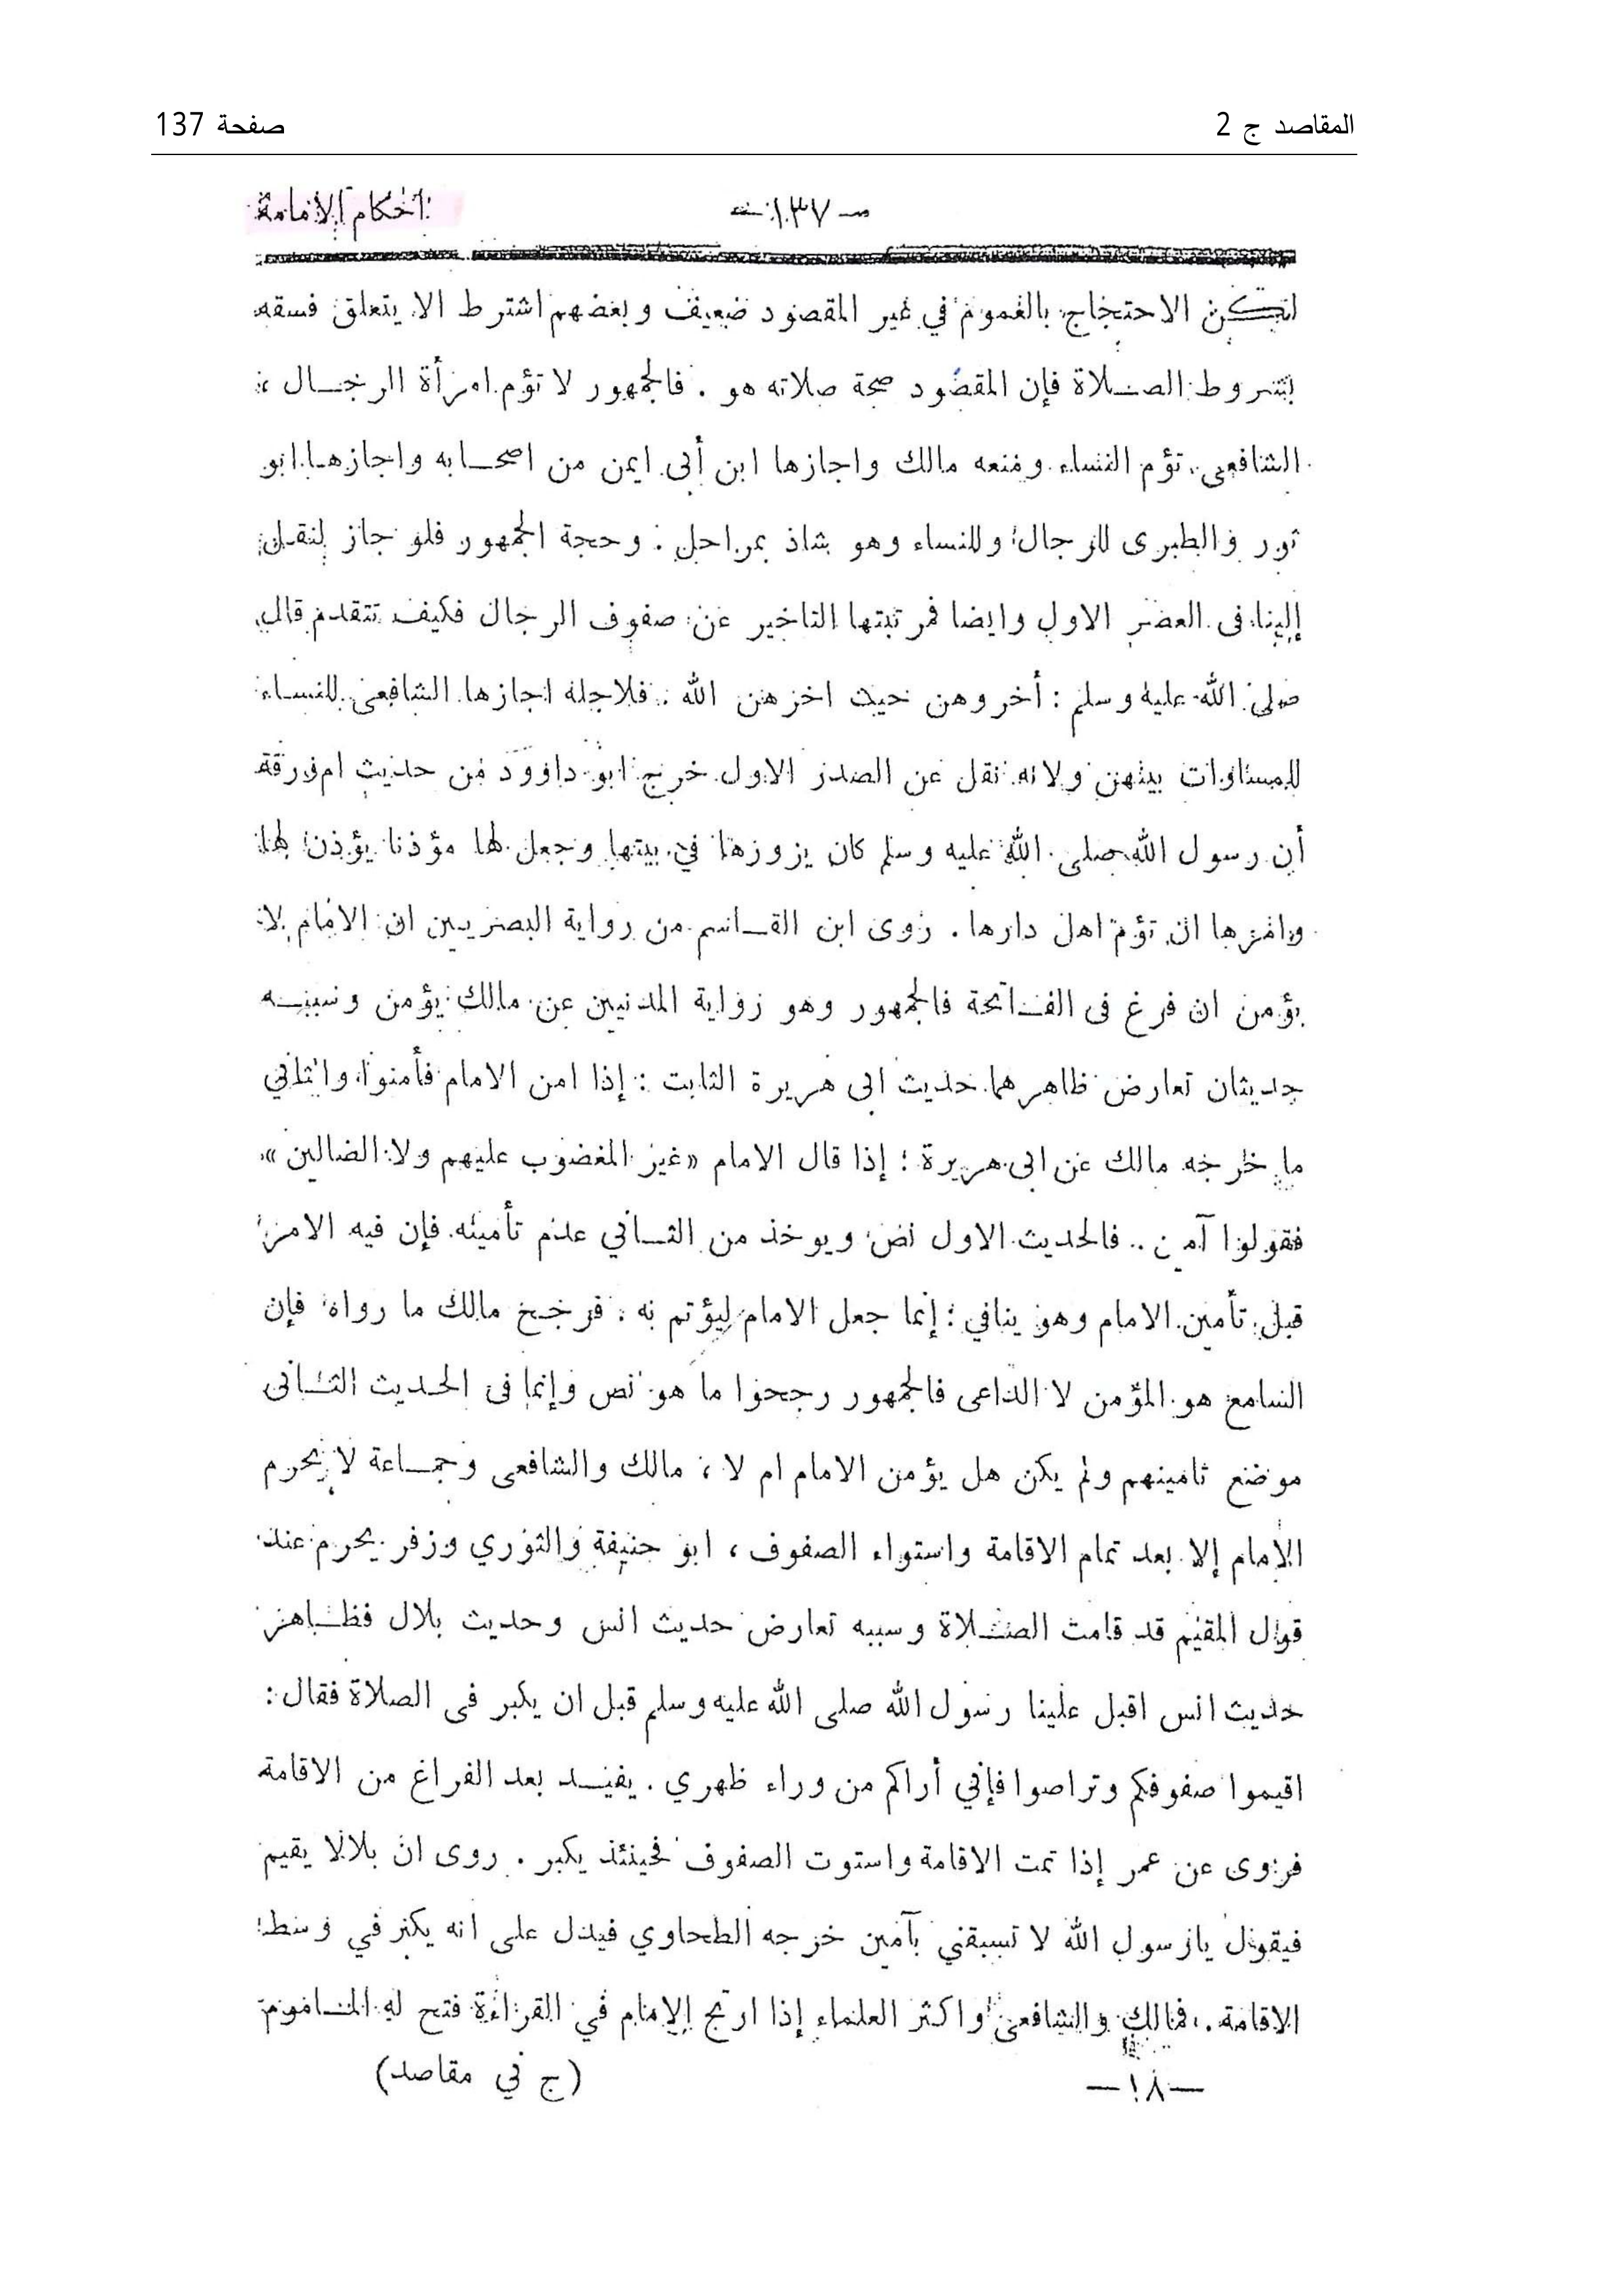 المقاصد ج 2
صفحة 137
احكام الإمامة
— ١٣٧ —
لكن الاحتجاج بالعموم في غير المقصود ضعيف وبعضهم اشترط الا يتعلق فسقه
بشروط الصلاة فإن المقصود صحة صلاته هو . فالجمهور لا تؤم امرأة الرجال ،
الشافعى تؤم النساء ومنعه مالك واجازها ابن أبى ايمن من اصحابه واجازها ابو
ثور والطبرى للرجال وللنساء وهو شاذ بمراحل . وحجة الجمهور فلو جاز لنقل
إلينا فى العصر الاول وايضا فمرتبتها التاخير عن صفوف الرجال فكيف تتقدم قال
صلى الله عليه وسلم : أخروهن حيث اخرهن الله . فلاجله اجازها الشافعى للنساء
للمساوات بينهن ولانه نقل عن الصدر الاول خرج ابو داوود من حديث ام ورقة
أن رسول الله صلى الله عليه وسلم كان يزورها في بيتها وجعل لها مؤذنا يؤذن لها
وامرها ان تؤم اهل دارها . روى ابن القاسم من رواية البصريين ان الامام لا
يؤمن ان فرغ فى الفاتحة فالجمهور وهو رواية المدنيين عن مالك يؤمن وسببه
حديثان تعارض ظاهرهما حديث ابى هريرة الثابت : إذا امن الامام فأمنوا والثاني
ما خرجه مالك عن ابى هريرة : إذا قال الامام «غير المغضوب عليهم ولا الضالين»
فقولوا آمين . فالحديث الاول نص ويوخذ من الثاني عدم تأمينه فإن فيه الامر
قبل تأمين الامام وهو ينافي : إنما جعل الامام ليؤتم به . فرجح مالك ما رواه فإن
السامع هو المؤمن لا الداعى فالجمهور رجحوا ما هو نص وإنما فى الحديث الثانى
موضع تامينهم ولم يكن هل يؤمن الامام ام لا ، مالك والشافعى وجماعة لا يحرم
الامام إلا بعد تمام الاقامة واستواء الصفوف ، ابو حنيفة والثوري وزفر يحرم عند
قول المقيم قد قامت الصلاة وسببه تعارض حديث انس وحديث بلال فظاهر
حديث انس اقبل علينا رسول الله صلى الله عليه وسلم قبل ان يكبر فى الصلاة فقال :
اقيموا صفوفكم وتراصوا فإني أراكم من وراء ظهري . يفيد بعد الفراغ من الاقامة
فروى عن عمر إذا تمت الاقامة واستوت الصفوف فحينئذ يكبر . روى ان بلالا يقيم
فيقول يا رسول الله لا تسبقني بآمين خرجه الطحاوي فيدل على انه يكبر في وسط
الاقامة . فمالك والشافعى واكثر العلماء إذا ارتج الإمام في القراءة فتح له الماموم
— ١٨ —
(ج في مقاصد)